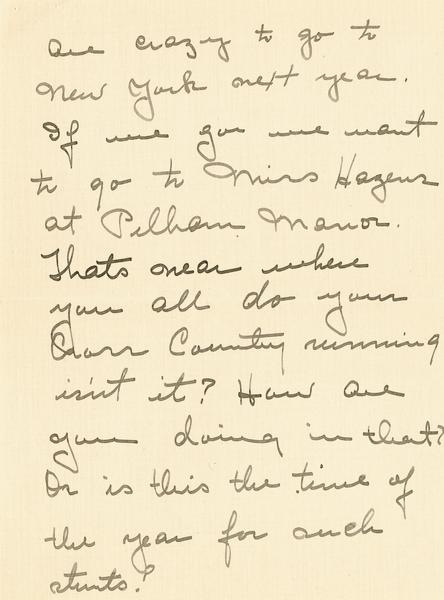 are crazy to go to
New York next year.
If we go we want
to go to Miss Hazens
at Pelham Manor.
Thats near where
you all do your
Cross Country running
isn't it? How are
you doing in that?
Or is this the time of
the year for such
stunts?